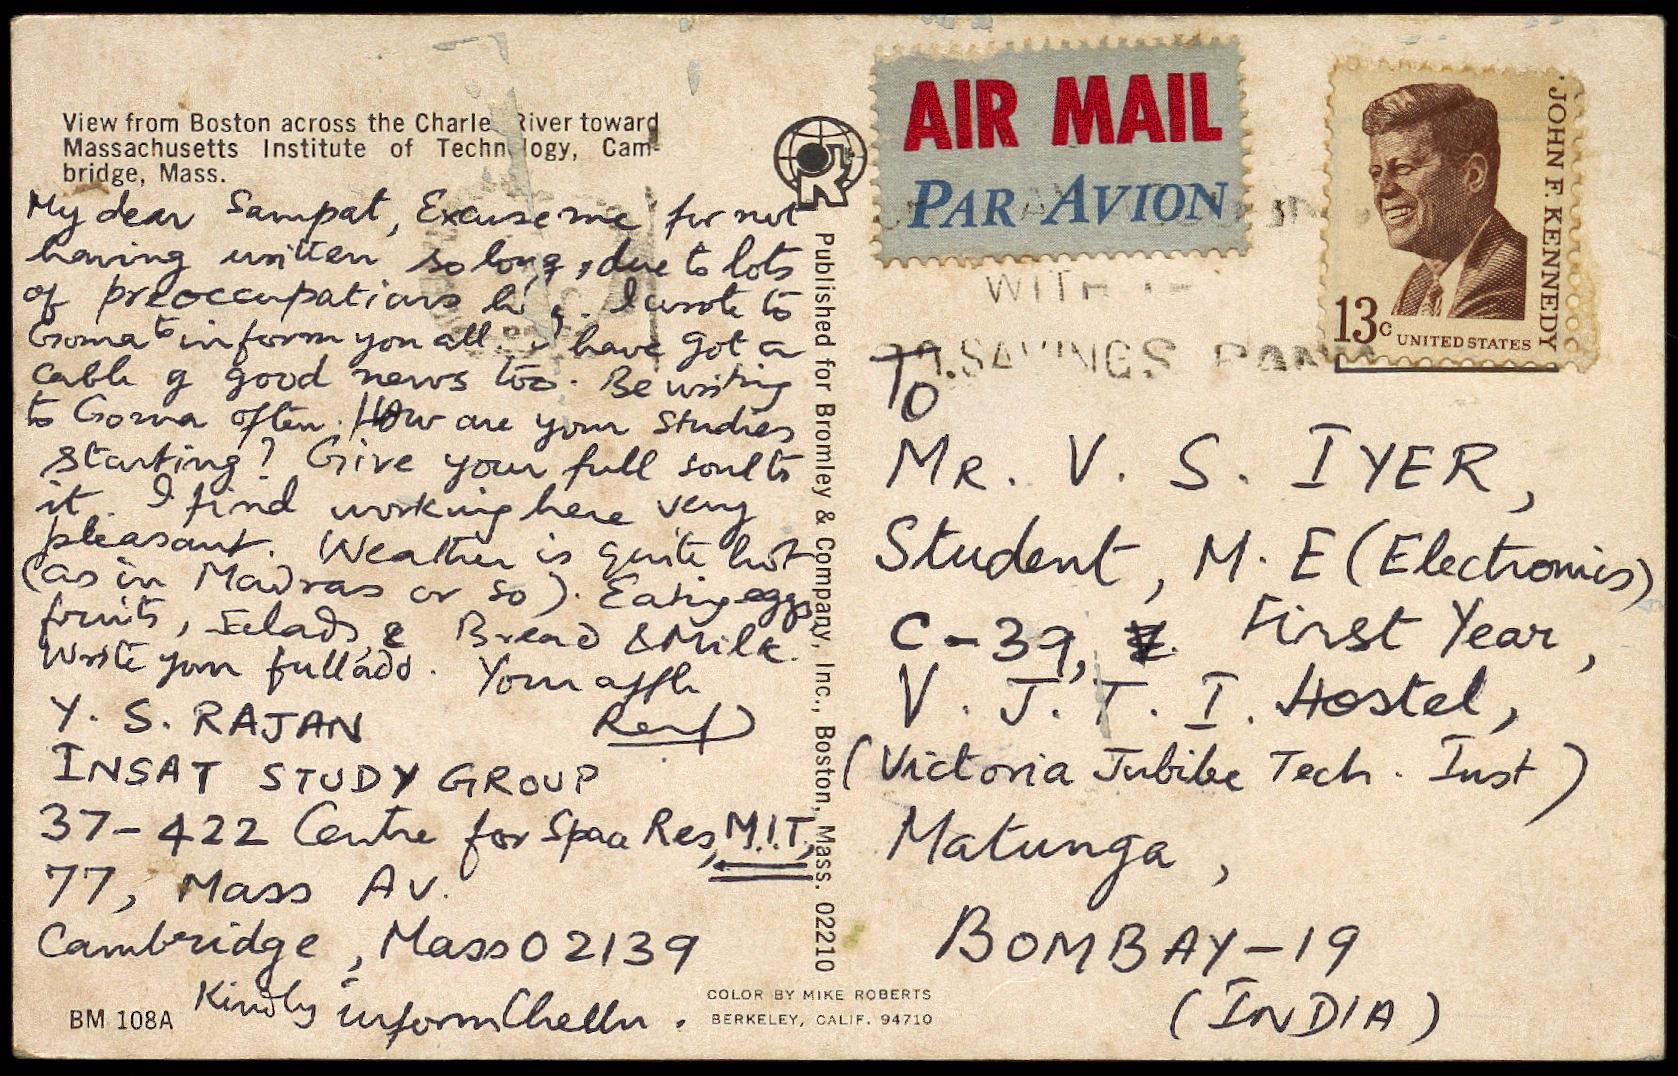 View from Boston across the Charles River toward
Massachusetts Institute of Technology, Cam-
bridge, Mass.
My dear Sampat, Excuse me for not
having written so long, due to lots
of preoccupations I wrote to
Goma to inform you all. I have got a
cable of good news too. Be writing
to Goma often. How are your studies
starting? Give your full soul to
it. I find working here very
pleasant. Weather is quite hot
(as in Madras or so). Eating eggs,
fruits, Salads, & Bread & Milk.
Write your full add. Your affly
Y. S. RAJAN
INSAT STUDY GROUP
37-422 Centre for Space Res, M.I.T,
77, Mass Av.
Cambridge, Mass 02139
Kindly inform Chellu.
BM 108A
Published for Bromley & Company, Inc., Boston, Mass. 02210
COLOR BY MIKE ROBERTS
BERKELEY, CALIF. 94710
AIR MAIL
PAR AVION
JOHN F. KENNEDY
13c UNITED STATES
WITH
SAVINGS
To
MR. V. S. IYER,
Student, M.E (Electronics)
C-39, First Year,
V. J. T. I. Hostel,
(Victoria Jubilee Tech. Inst)
Matunga,
BOMBAY-19
(INDIA)